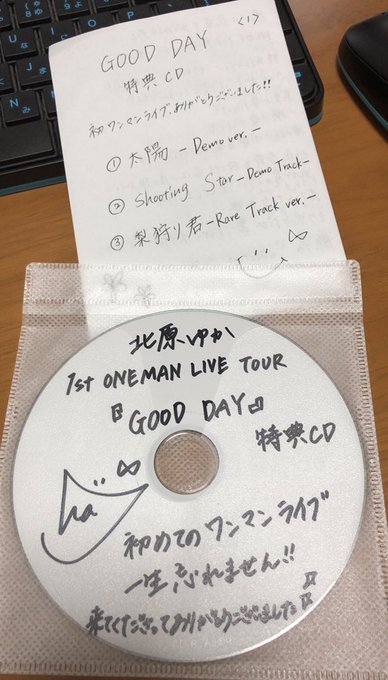 GOOD DAY <1>
特典 CD
初ワンマンライブ、ありがとうございました!!
① 太陽 -Demo ver.-
② Shooting Star -Demo Track-
③ 梨狩り君 -Rare Track ver.-
北原ゆか
1st ONEMAN LIVE TOUR
『GOOD DAY』
特典CD
初めてのワンマンライブ
一生忘れません!!
来てくださってありがとうございました